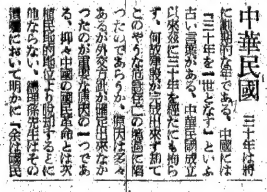 中華民國 三十年は將
に劃期的な年である。中國には
「三十年を一世となす」といふ
古い言葉がある。中華民國成立
以來茲に三十年を にも拘ら
ず、何故建設が完成出來ず却て
このやうな危險 境遇に陷
つたのであらうか。原因は多々
あるが外交方 が確定出來なか
つたのが重要な原因の一つであ
る。抑々中國の國民革命とは次
植民地的地位より脱却するとに
他ならない。總理孫先生はその
遺囑において明かに「余は國民